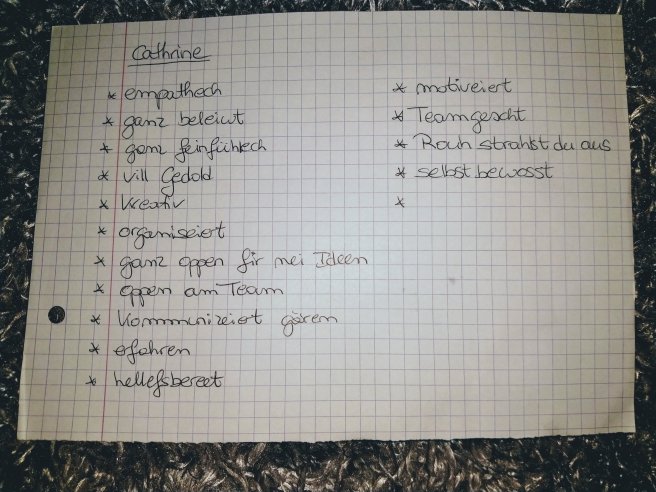 Cathrine
* empathech
* ganz beleiwt
* ganz feinfühlech
* vill Gedold
* kreativ
* organiseiert
* ganz oppen fir nei Ideen
* oppen am Team
* kommunizeiert gären
* erfahren
* hellefsbereet
* motiveiert
* Teamgescht
* Rouh strahlst du aus
* selbstbewosst
*